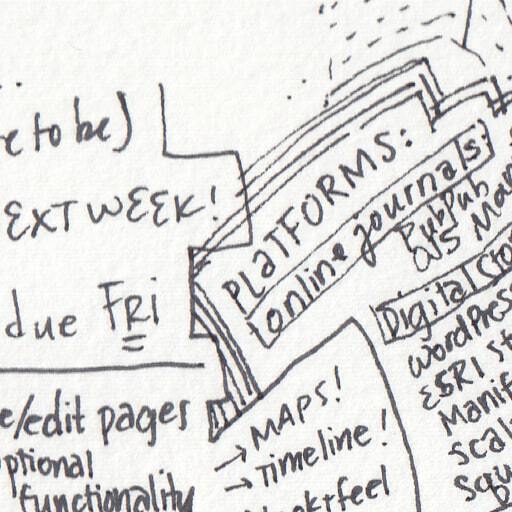 to be)
EXT WEEK!
due FRi
e/edit pages
optional
functionality
PLATFORMS:
online journals:
PubPub
OJS Man
Digital Sto
WordPress
ESRI St
Manif
Scal
Squ
→ MAPS!
→ Timeline!
look+feel